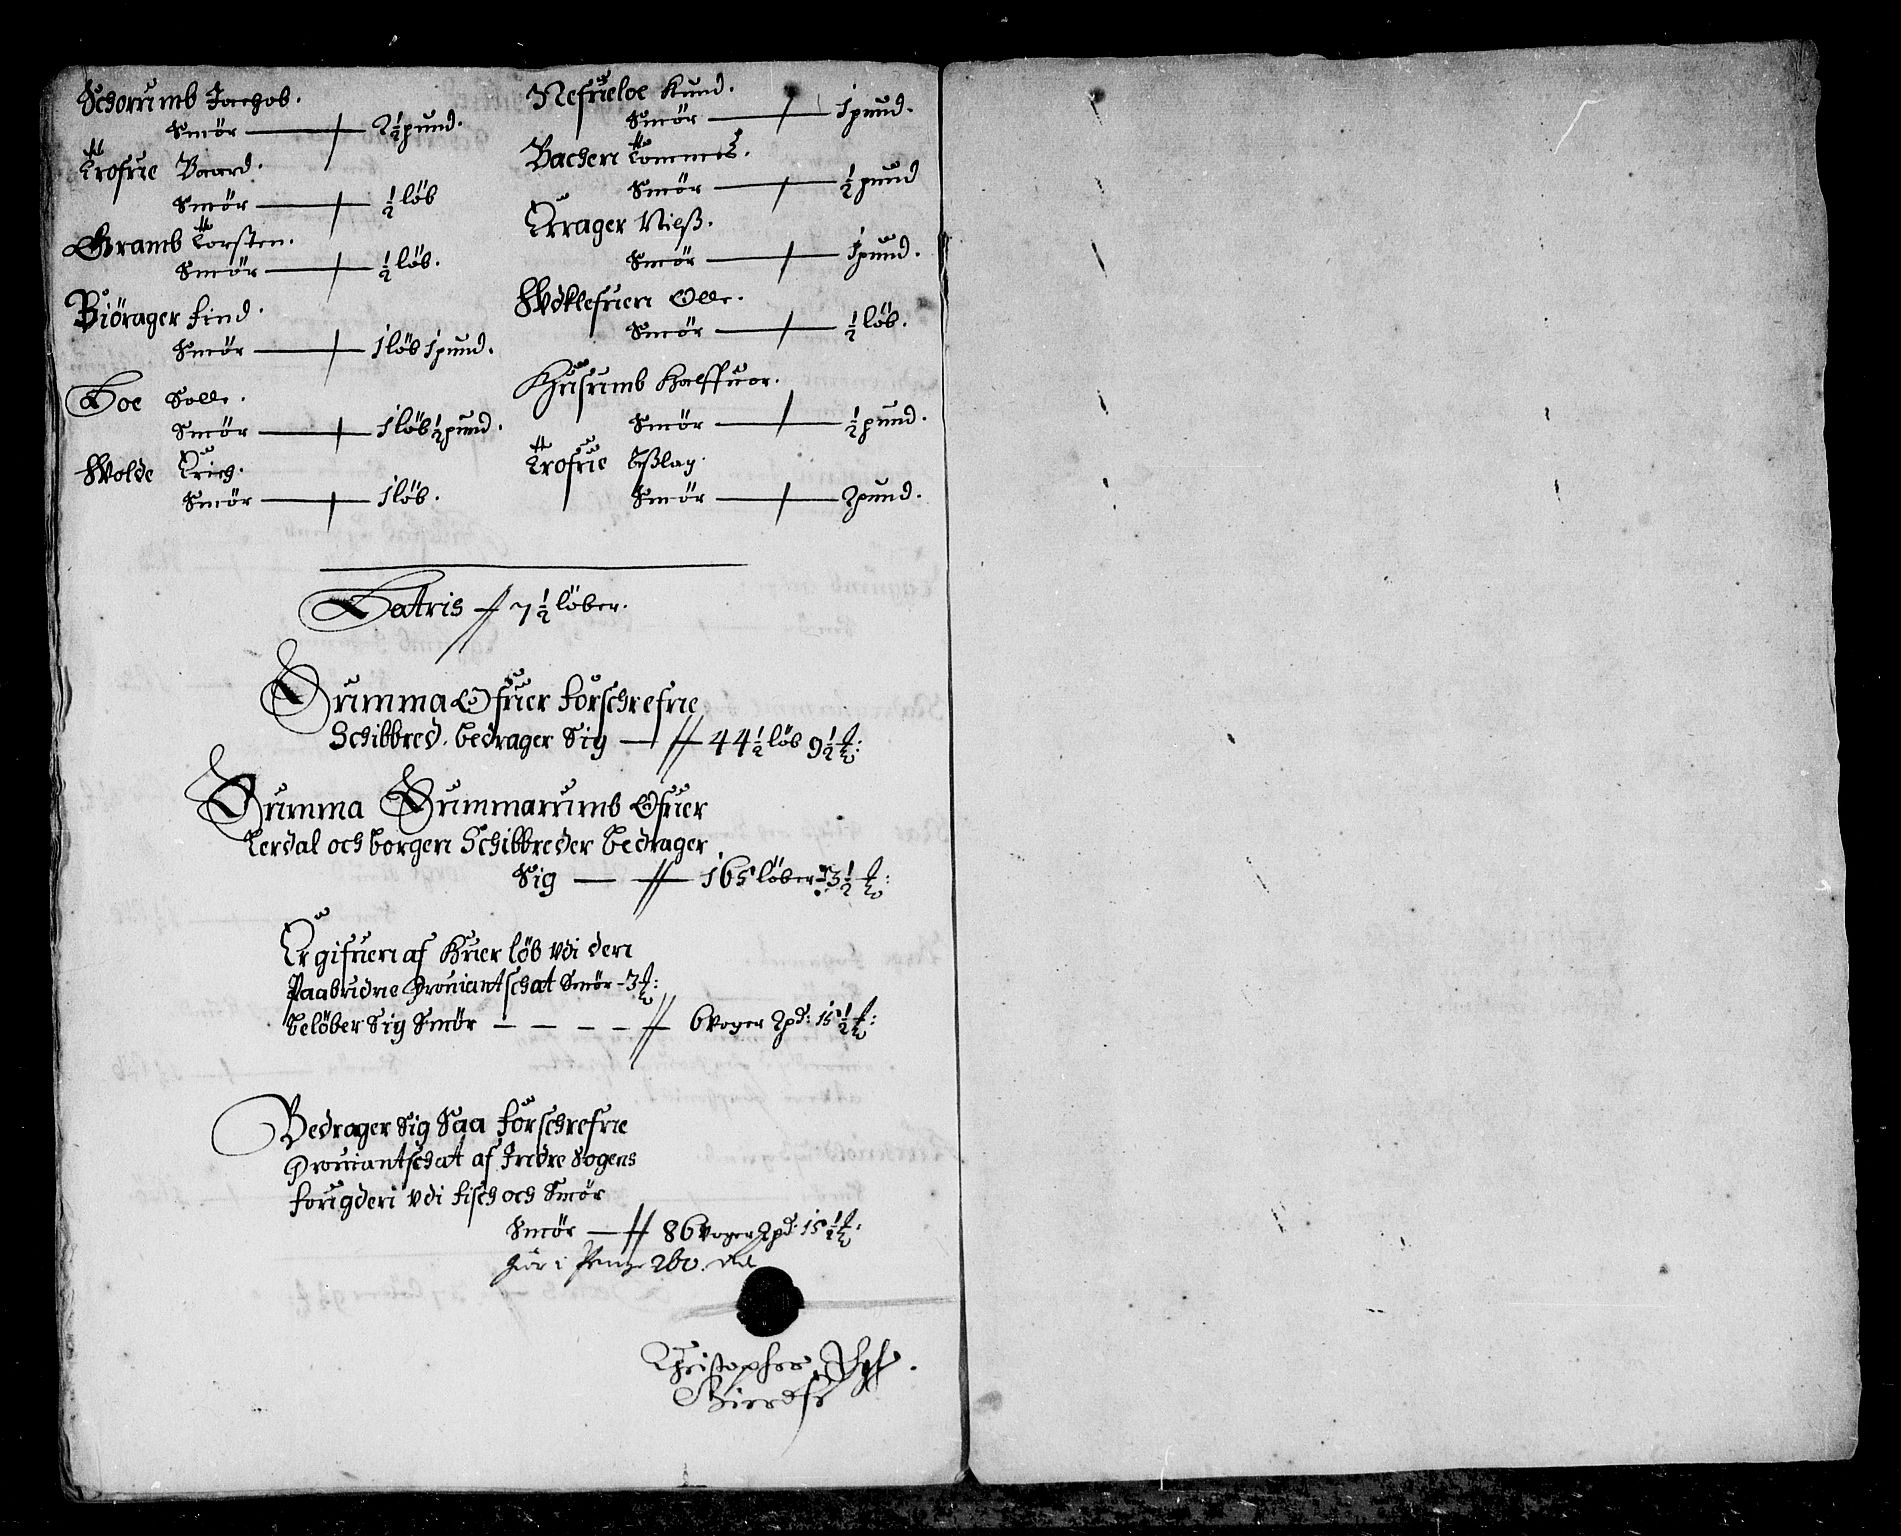 Schorrumb Jachob.
Smör — 2½ pund.
Trofrie Baard.
Smör — ½ löb
Gramb Torsten.
Smör — ½ löb.
Biörager find.
Smör — 1 löb 1 pund.
Hoe Solle.
Smör — 1 löb ½ pund.
Wolde Erich.
Smör — 1 löb.
Nefrieloe Knud.
Smör — 1 pund.
Bachen Tommes.
Smör — ½ pund
Errager Nielß.
Smör — 1 pund.
Wdklefuen Olle.
Smör — ½ löb.
Husumb Halffuor.
Smör — ½ pund.
Trofrie Aßlag.
Smör — 2 pund.
Latris 7½ löber.
Summa Ofuer forschrefne
Schibbred. bedrager Sig — 44½ löb 9½ ℔:
Summa Summarrumb Ofuer
Lerdal och borgen Schibbreder bedrager
Sig — 165 löber 13½ ℔:
Er gifuen af huer löb vdi den
Paabudne Prouiantschat Smör - 3 ℔:
belöber Sig Smör — 6 Voger 2 pd: 15½ ℔:
Bedrager Sig Saa forschrefne
Prouiantschat af Indre Sogens
fougderi vdi fisch och Smör
Smör — 86 Voger 2 pd: 15½ ℔:
giör i Penge 260. dlr
Christopher